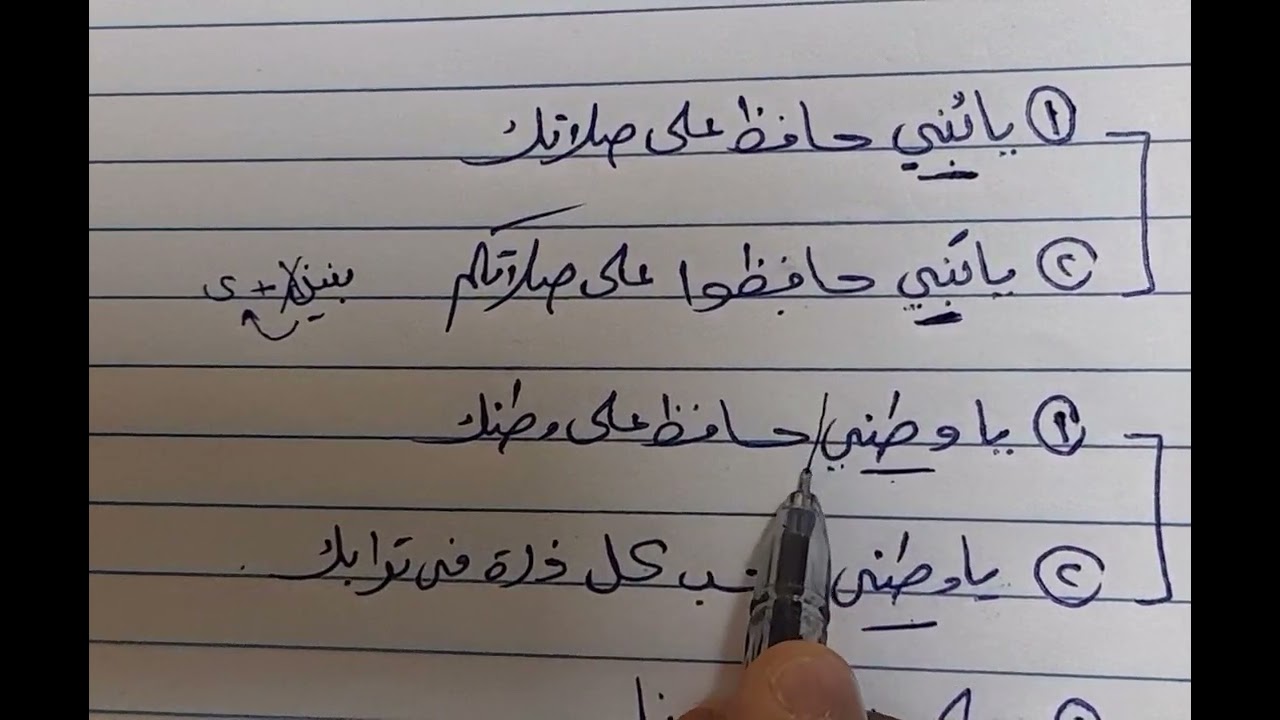 ١ يا بُنَي حافظ على صلاتك
٢ يا بَنِي حافظوا على صلاتكم بنين + ى
١ يا وطني / حافظ على وطنك
٢ يا وطنى كل ذرة فى ترابك .